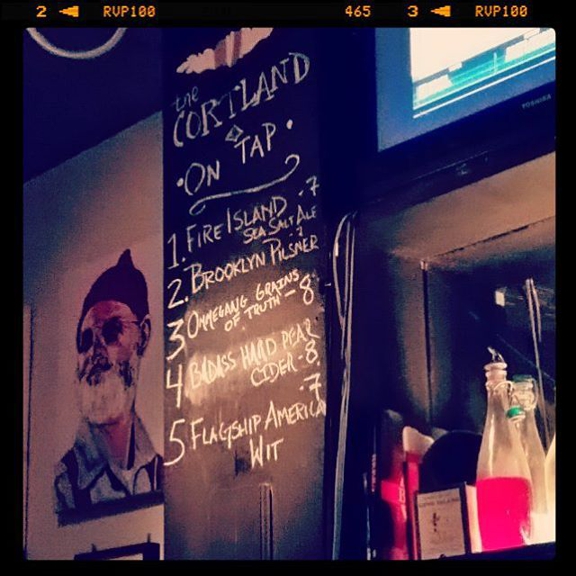 2 ◄ RVP100 465 3 ◄ RVP100
TOSHIBA
the
CORTLAND
ON TAP
1. FIRE ISLAND .7
SEA SALT ALE
2. BROOKLYN PILSNER .7
3 OMMEGANG GRAINS
OF TRUTH - 8
4 BADASS HARD PEAR
CIDER - 8
5 FLAGSHIP AMERICA .7
WIT